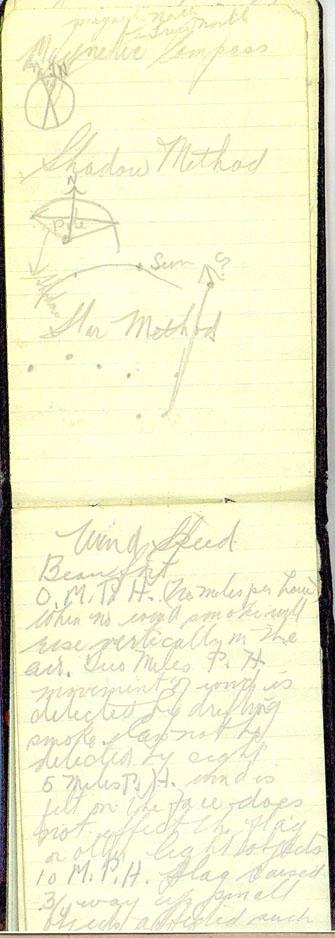 magnetic North
True North
Magnetic Compass
N
Shadow Method
N
Pole
Sun
Shadow
Star Method
Wind Speed
Beaufort
O. M. P. H. (No miles per hour)
When no wind smoke will
rise vertically in the
air. Two Miles P. H.
movement of wind is
detected by drifting
smoke. Can not be
detected by sight
5 Miles P. H. wind is
felt on the face does
not effect the flag
or other light objects
10 M. P. H. flag raised
3/4 way up small
objects affected such